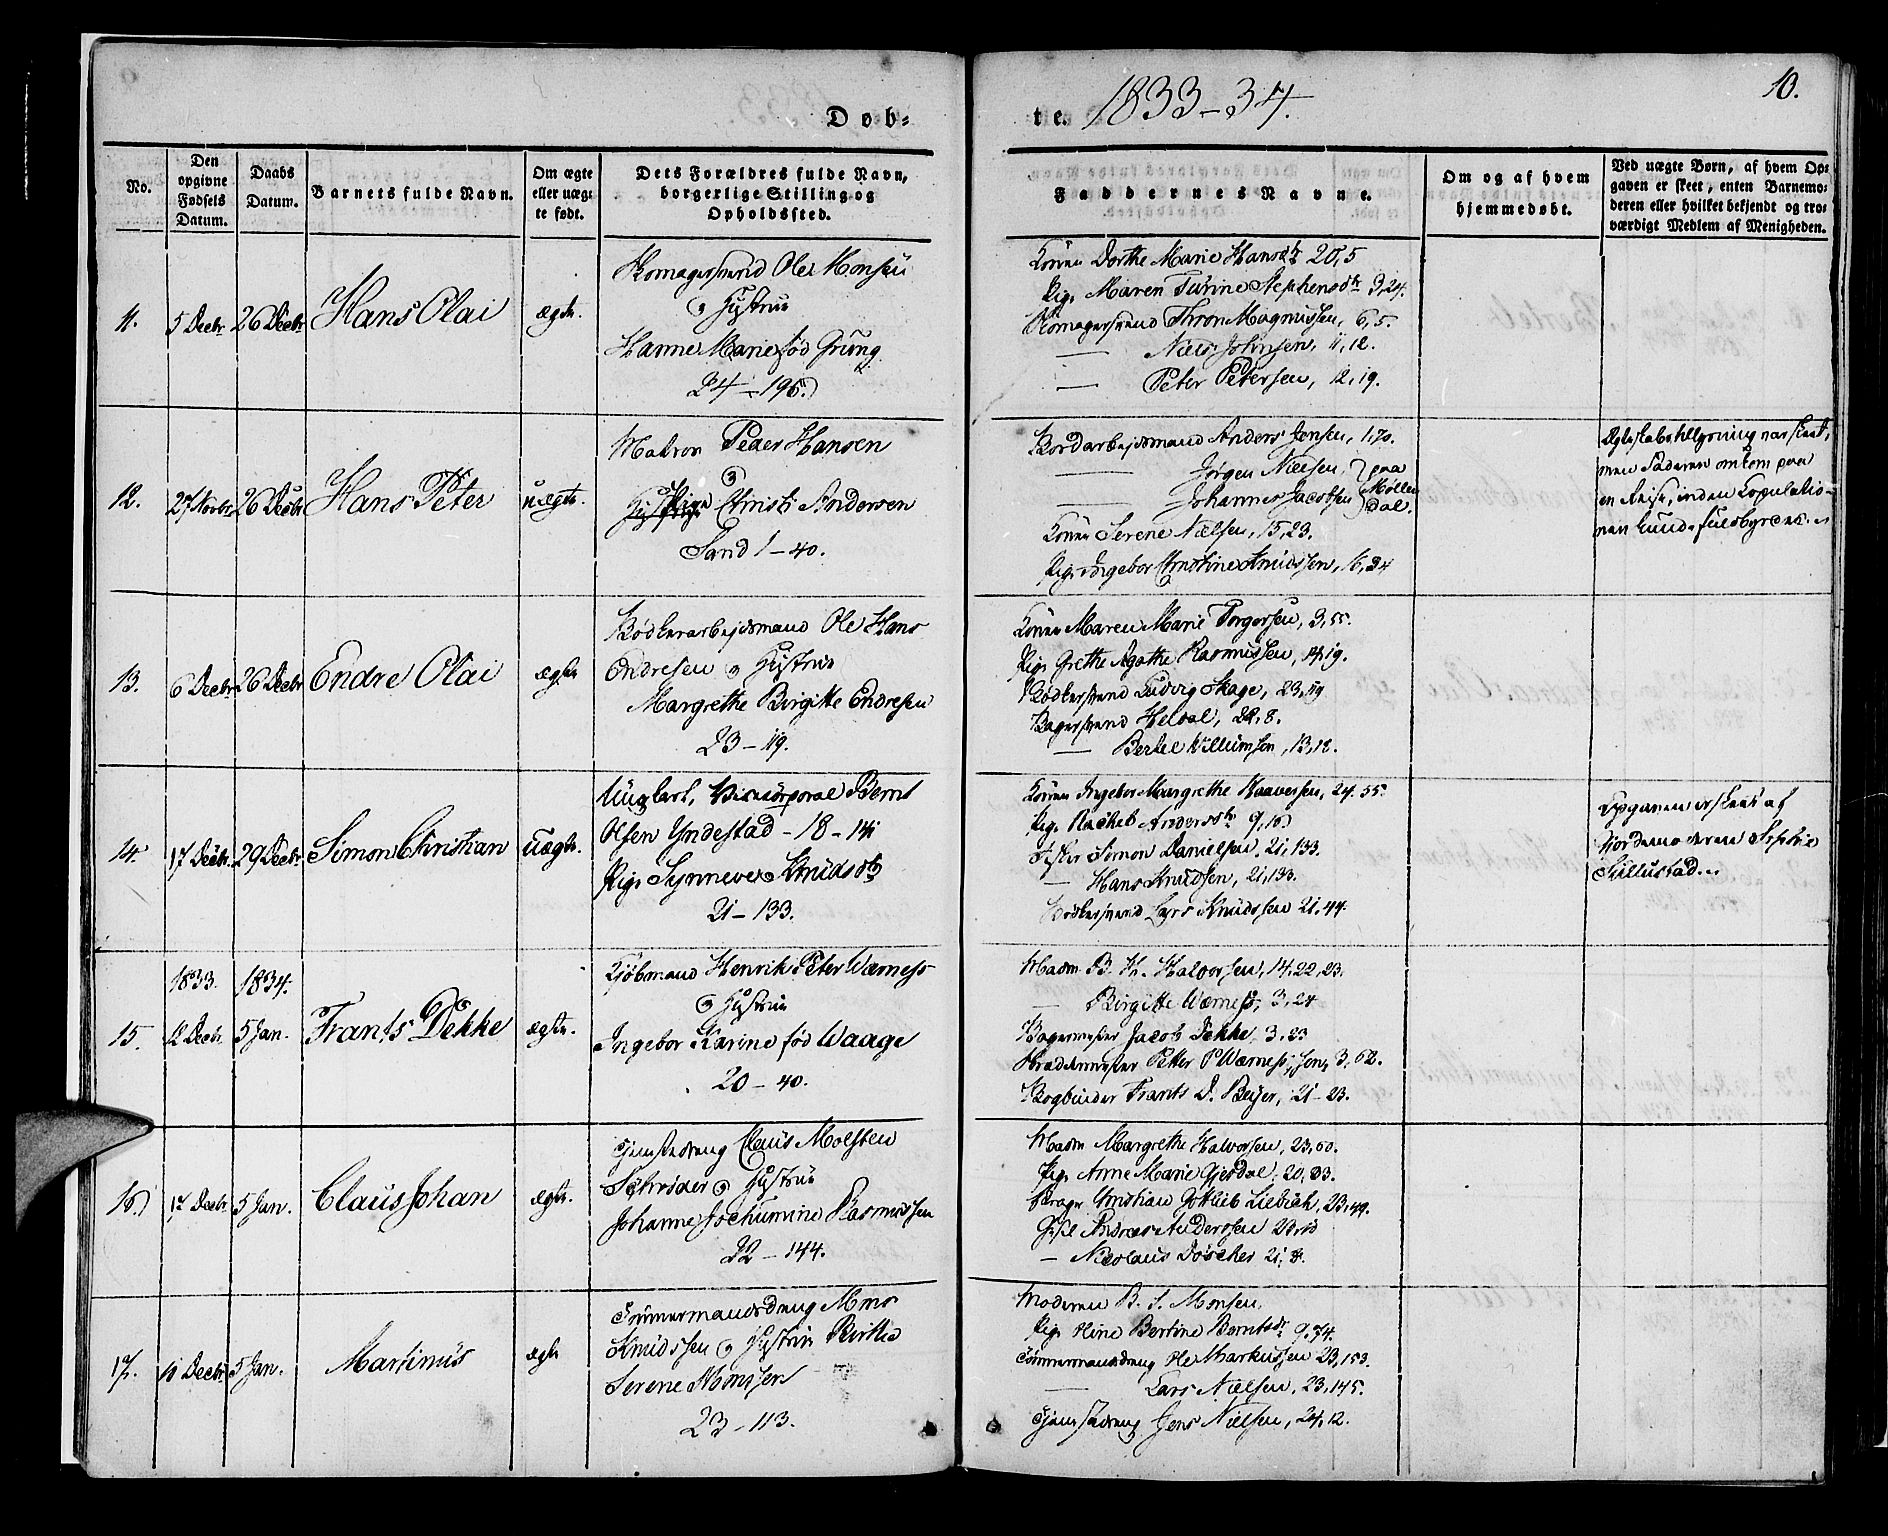 10.
Døb-
te. 1833-34.
No.
Den opgivne Fødsels Datum.
Daabs Datum.
Barnets fulde Navn.
Om ægte eller uægte født.
Dets Forældres fulde Navn, borgerlige Stilling og Opholdssted.
Faddernes Navne.
Om og af hvem hjemmedøbt.
Ved uægte Børn, af hvem Opgaven er skeet, enten Barnemoderen eller hvilket bekjendt og troværdigt Medlem af Menigheden.
11. 5 Decbr 26 Decbr Hans Olai ægte.
Ole Monsen
Hustrue
Hanne Marie fød Grung
24-196.
Dorthe Marie Hansdtr 20,5
Pige Maren Turine Stephensdtr 3,24.
Thron Magnussen, 6,5.
— Niels Johnsen, 11,12.
— Peter Petersen, 12,19.
12. 27 Novbr 26 Decbr Hans Peter uægte.
Matros Peder Hansen
og
Pige Christi Andersen
Sand 1-40.
Anders Jensen, 1,70.
Jørgen Nielsen, } paa
Johannes Jacobsen } Møllendal.
Konen Serene Nielsen, 15,23.
Pige Ingebor Christine Knudssen, 16,34
men Faderen omkom paa
en Reise, inden Copulatio-
nen kunde fuldbyrdes.
13. 6 Decbr 26 Decbr Endre Olai ægte
Bødkerarbejdsmand Ole Hans
Endresen og Hustrue
Margrethe Birgitte Endresen
23-119.
Konen Maren Marie Torgersen, 3,55.
Pige Grethe Agathe Rasmussen, 14,19.
Bødkersvend Ludvig Skage, 23,119
Bagersvend Heldal, 22,8.
— Bertel Willumsen, 13,12.
14. 17 Decbr 29 Decbr Simon Christian uægte.
Ungkarl, Vicecorporal Bernt
Olsen Yndestad - 18 - 141
Pige Synneve Knudsdtr
21-133.
Konen Ingebor Margrethe Haaversen, 24.55.
Pige Rachel Andersdtr 9,16
Fisker Simon Danielsen, 21,133.
— Hans Knudsen, 21,133.
Bødkersvend Lars Knudssen 21,44.
Opgaven er skeet af
Jordemoderen
1833. 1834.
15. 12 Decbr 5 Jan. Frants Dekke ægte.
Kjøbmand Henrik Peter Wærness
og Hustrue
Ingebor Karine fød Waage
20-40.
Madm B. H. Halvorsen, 14,22,23.
— Birgitte Wærness, 3,24
Bagermester Jacob Dekke 3,23
Petter P Wærness, sen, 3,62.
Bogbinder Frants D. Beijer, 21-23.
16. 17 Decbr 5 Jan. Claus Johan ægte.
Tjenestedreng Claus Molsten
Schrøder og Hustrue
Johanne Jochumine Rasmussen
22-144.
Madm Margrethe Halvorsen, 23,60.
Pige Anne Marie Gjerdal, 20,33.
Christian Gottlieb Liebich, 23,49.
Andreas Andersen 23,13
— Nicolaus Døscher 21,8.
17. 11 Decbr 5 Jan. Martinus ægte
Tømmermandsdreng Mons
Knudssen og Hustrue Birthe
Serene Monssen
23-113.
Moderen B. S. Monsen,
Pige Stine Bertine Berntsdtr 9,74.
Tømmermandsdreng Ole Markussen 23,153.
— Lars Nielsen, 23,145.
Tjenestedreng Jens Nielsen, 24,12.